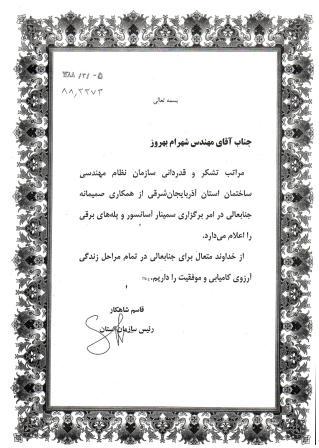 ۱۳۸۸/۲/۰۵
۸۸,۲۲۷۳
بسمه تعالی
جناب آقای مهندس شهرام بهروز
مراتب تشکر و قدردانی سازمان نظام مهندسی
ساختمان استان آذربایجان‌شرقی از همکاری صمیمانه
جنابعالی در امر برگزاری سمینار آسانسور و پله‌های برقی
را اعلام می‌دارد.
از خداوند متعال برای جنابعالی در تمام مراحل زندگی
آرزوی کامیابی و موفقیت را داریم.
قاسم شاهکار
رئیس سازمان استان